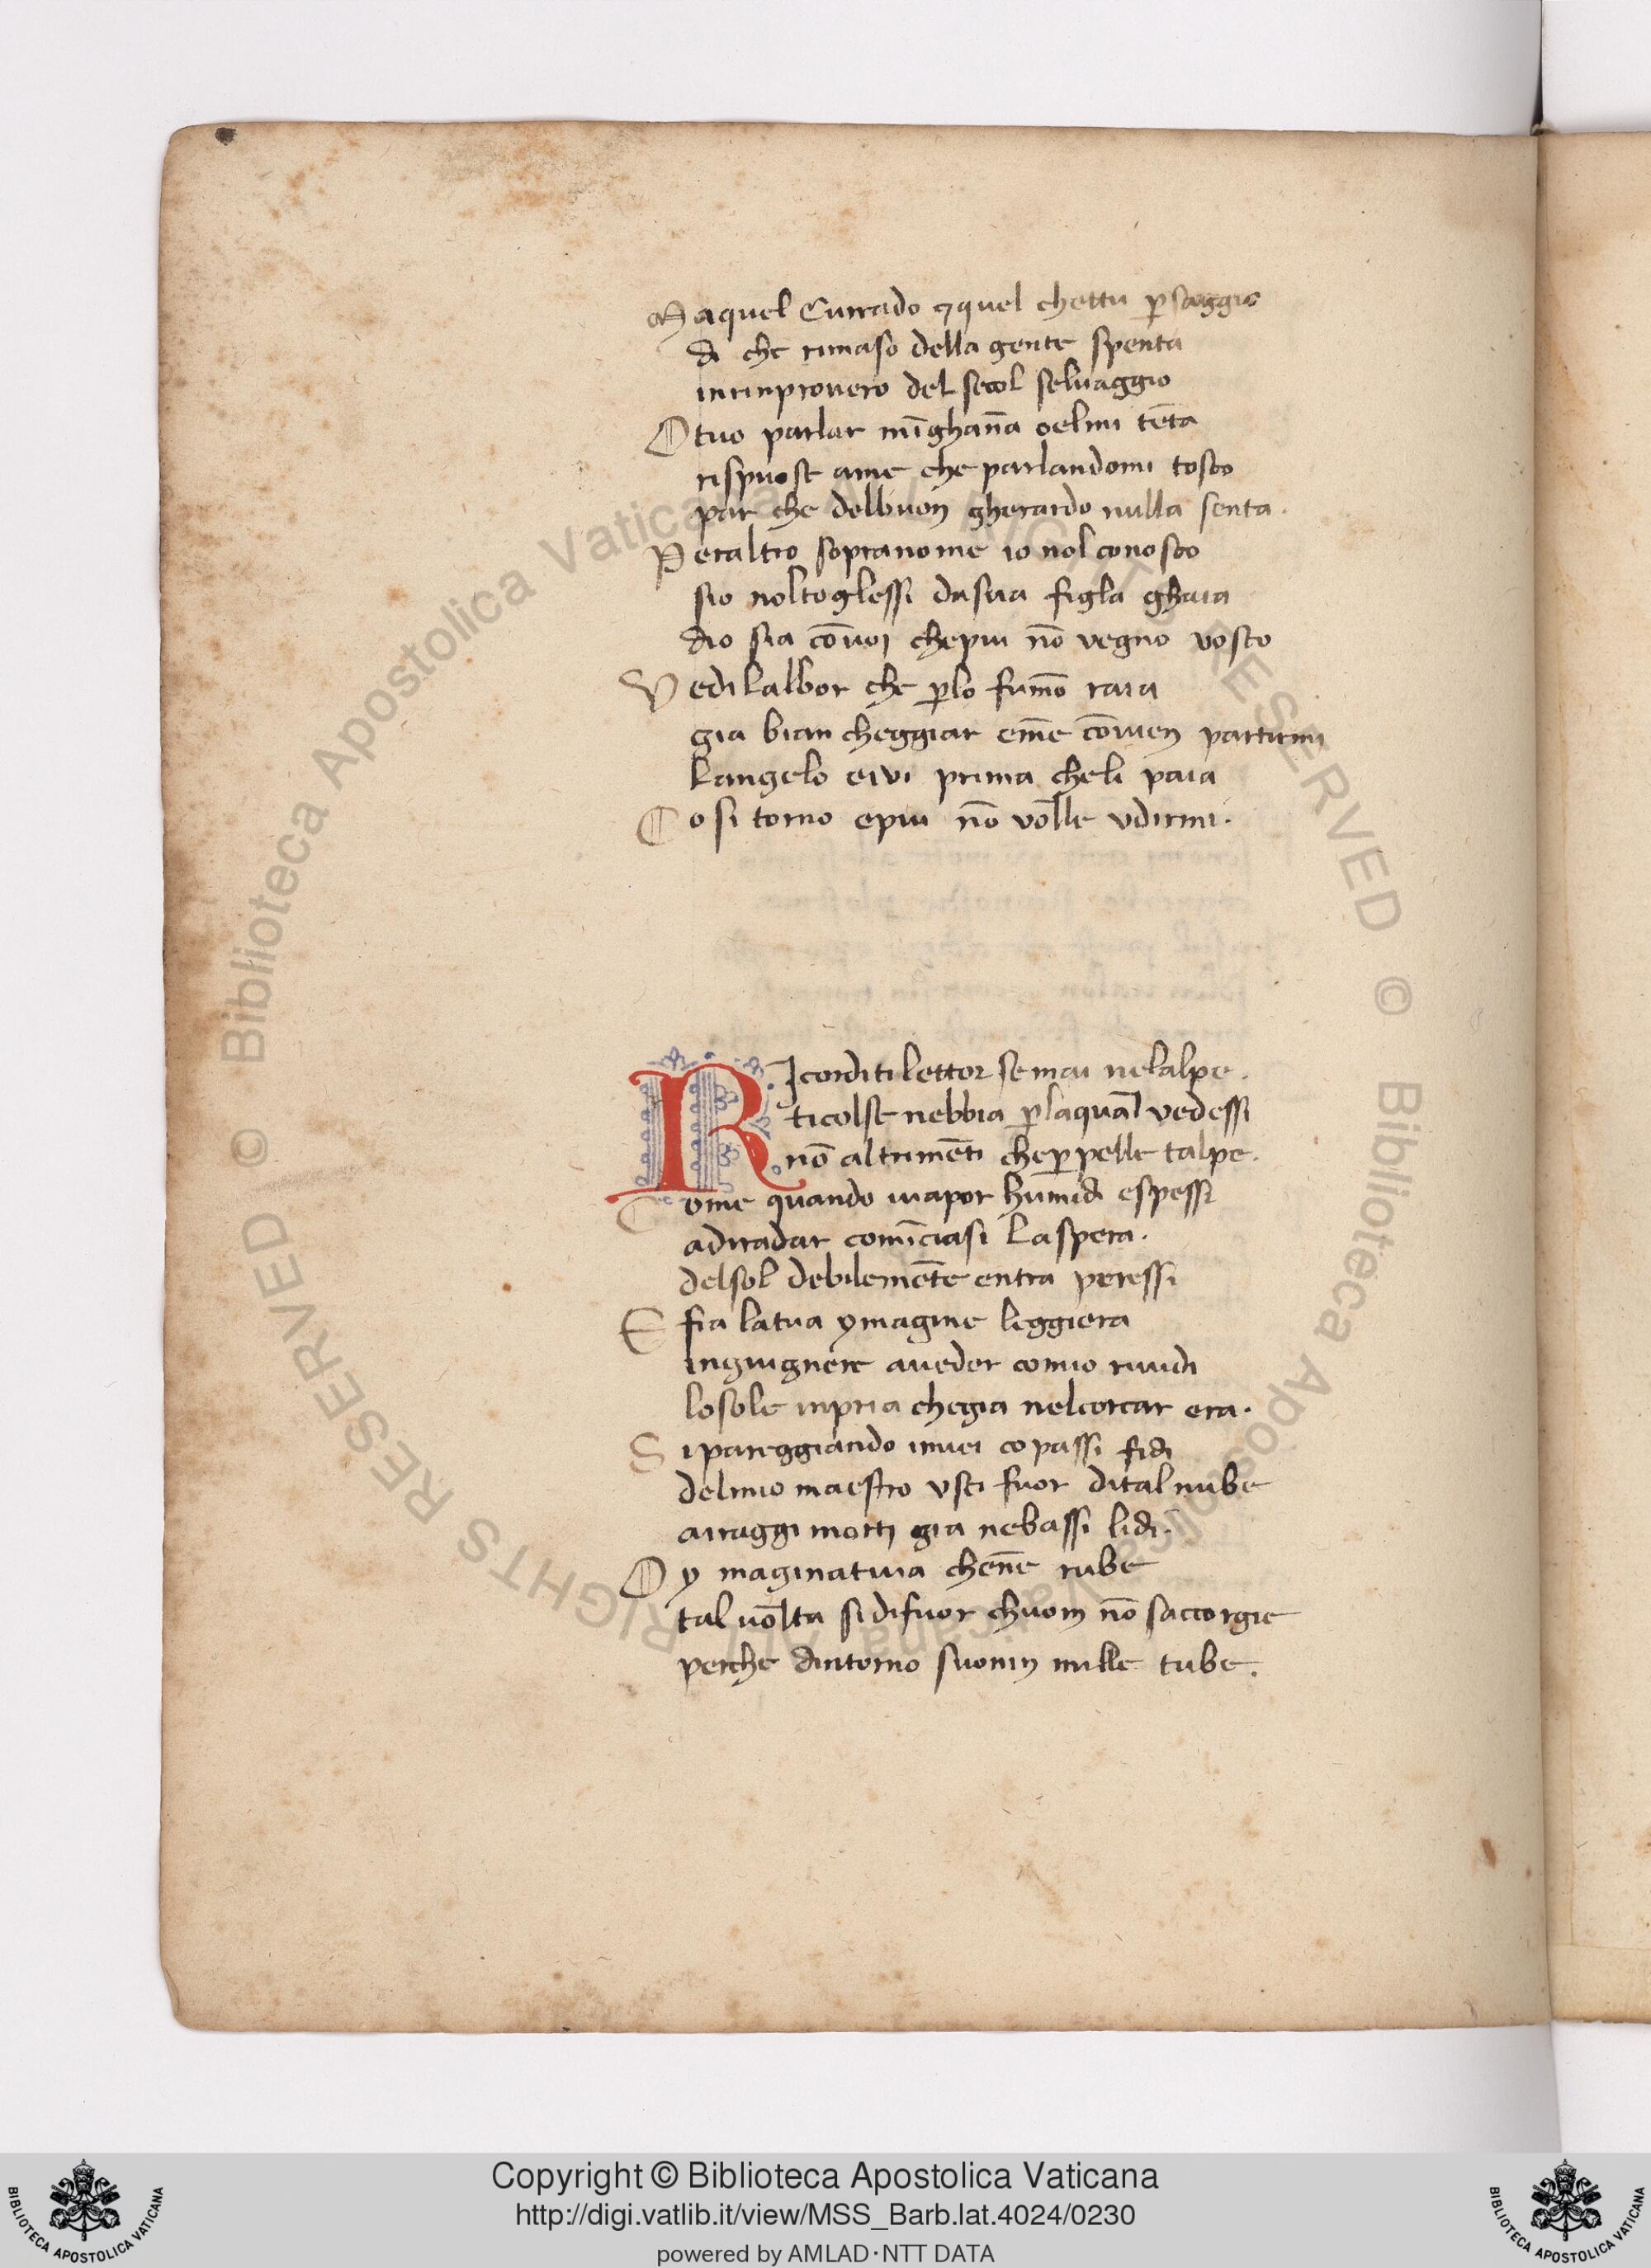 Maquel Currado ⁊quel chettu p̲ saggio
di che rimaso della gente spenta
inrinprouero del secol seluaggio
O tuo parlar mīghan̄a oelmi tēta
rispuose ame che parlandomi tosco
par che delbuon gherardo nulla senta.
Peraltro sopranome io nol conosco
sio noltoglessi dasua figla ghaia
dio sia cōuoi chepiu nō vegno vosco
Vedi lalbor che p̲lo fum̄o raia
gia bian cheggiar em̄e cōuien partirmi
Langelo eivi prima cheli paia
Cosi torno epiu nō volle vdirmi.
RIcorditi lettor semai nelalpe.
ticolse nebbia p̲laqual vedessi
nō altrimēti chep̲ pelle talpe.
Come quando iuapor humidi espessi
adiradar comīciasi Laspera.
delsol debilemēte entra peressi
E fia latua ymagine leggiera
ingiugnere aueder comio riuidi
losole inpria chegia nelcorcar era.
Si pareggiando imiei co passi fidi
delmio maestro vsci fuor dital nube
airaggi morti gia nebassi lidi.
O y maginatiua chen̄e rube
tal uolta si difuor chuom nō saccorgie
perche dintorno suonin mille tube.
© Biblioteca Apostolica Vaticana ALL RIGHTS RESERVED
© Biblioteca Apostolica Vaticana ALL RIGHTS RESERVED
BIBLIOTECA APOSTOLICA VATICANA
Copyright © Biblioteca Apostolica Vaticana
http://digi.vatlib.it/view/MSS_Barb.lat.4024/0230
powered by AMLAD·NTT DATA
BIBLIOTECA APOSTOLICA VATICANA